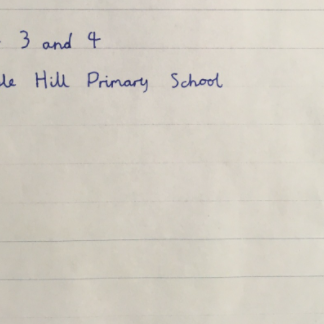 3 and 4
Hill Primary School